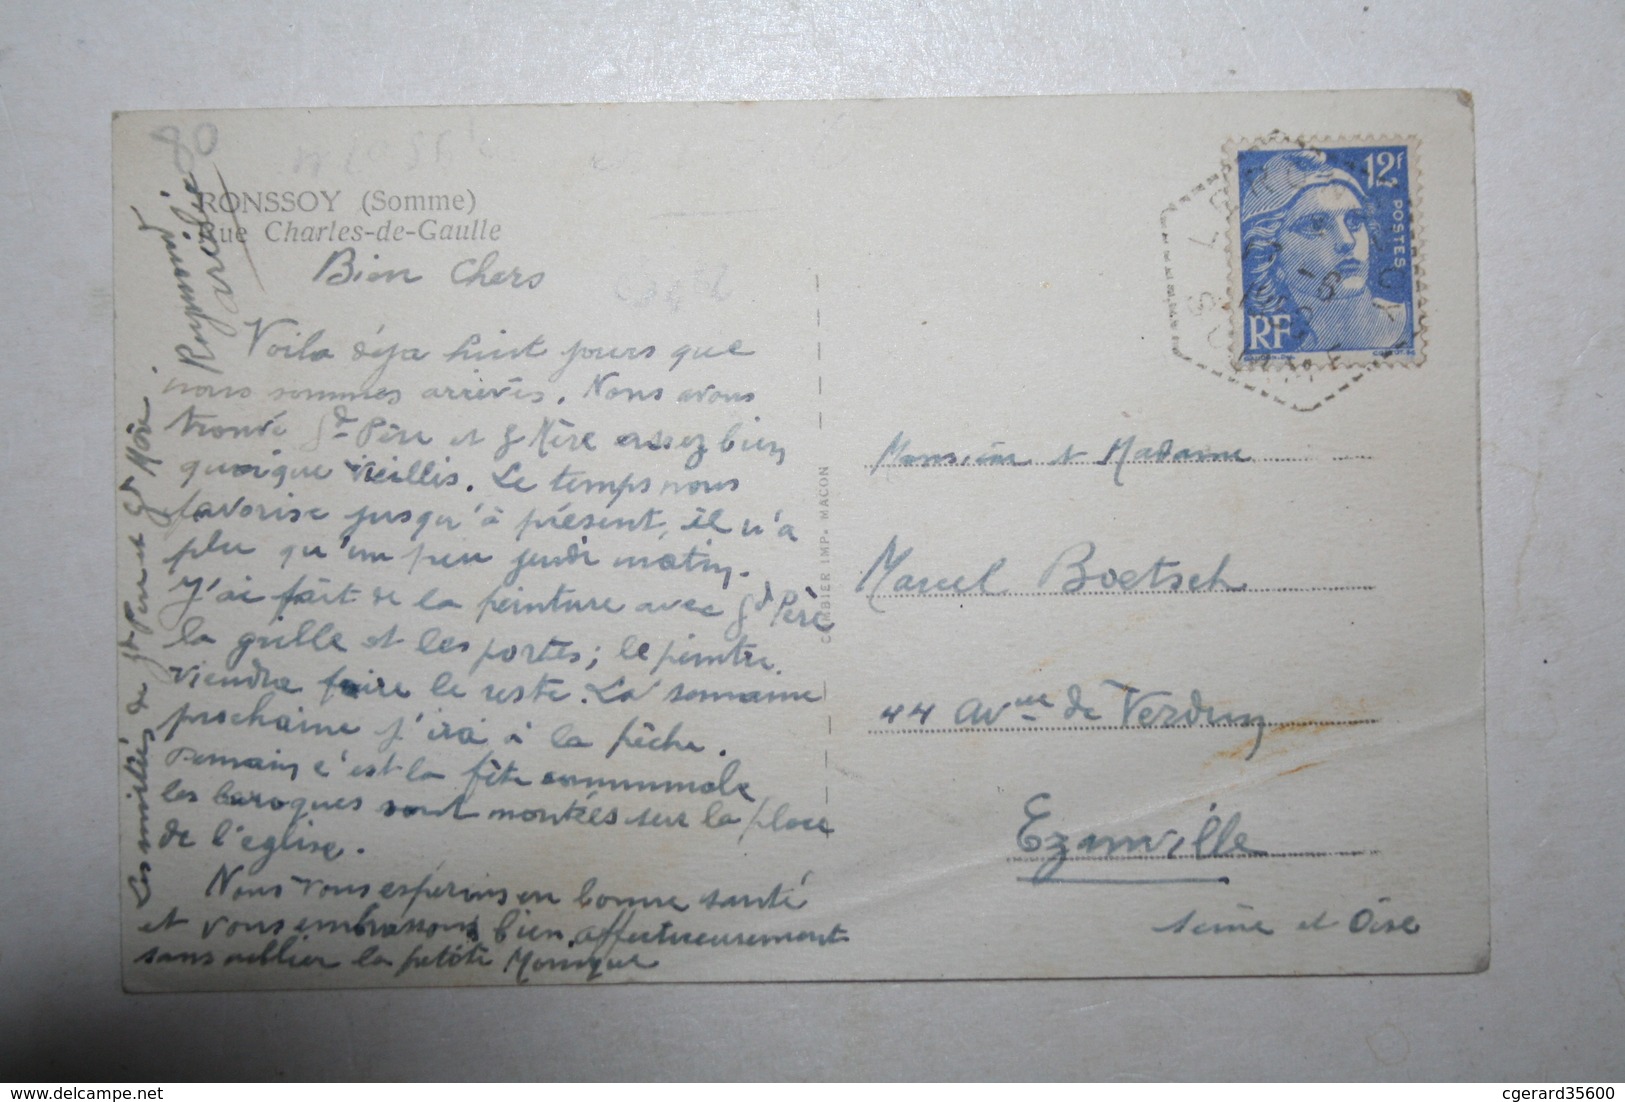 RONSSOY (Somme)
Rue Charles-de-Gaulle
Bien Chers
Voila déja huit jours que
nous sommes arrivés. Nous avons
trouvé Gd Père et G Mère assez bien
quoique vieillis. Le temps nous
favorise jusqu'à présent, il n'a
plu qu'un peu jeudi matin.
J'ai fait de la peinture avec Gd Père
la grille et les portes; le peintre
viendra faire le reste. La semaine
prochaine j'irai à la pêche.
Demain c'est la fête communale
les baroques sont montées sur la place
de l'église.
Nous vous espérons en bonne santé
et vous embrassons bien affectueusement
sans oublier la petite Monique
Les amitiés de Gd Père et Gd Mère.
Raymond
80
CORBIER IMP. MACON
12f
POSTES
RF
Monsieur et Madame
Marcel Boetsch
44 Avnue de Verdun
Ezanville
Seine et Oise
cgerard35600